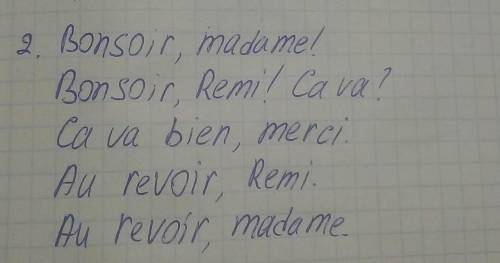 2. Bonsoir, madame!
Bonsoir, Remi! Ca va?
Ca va bien, merci.
Au revoir, Remi.
Au revoir, madame.